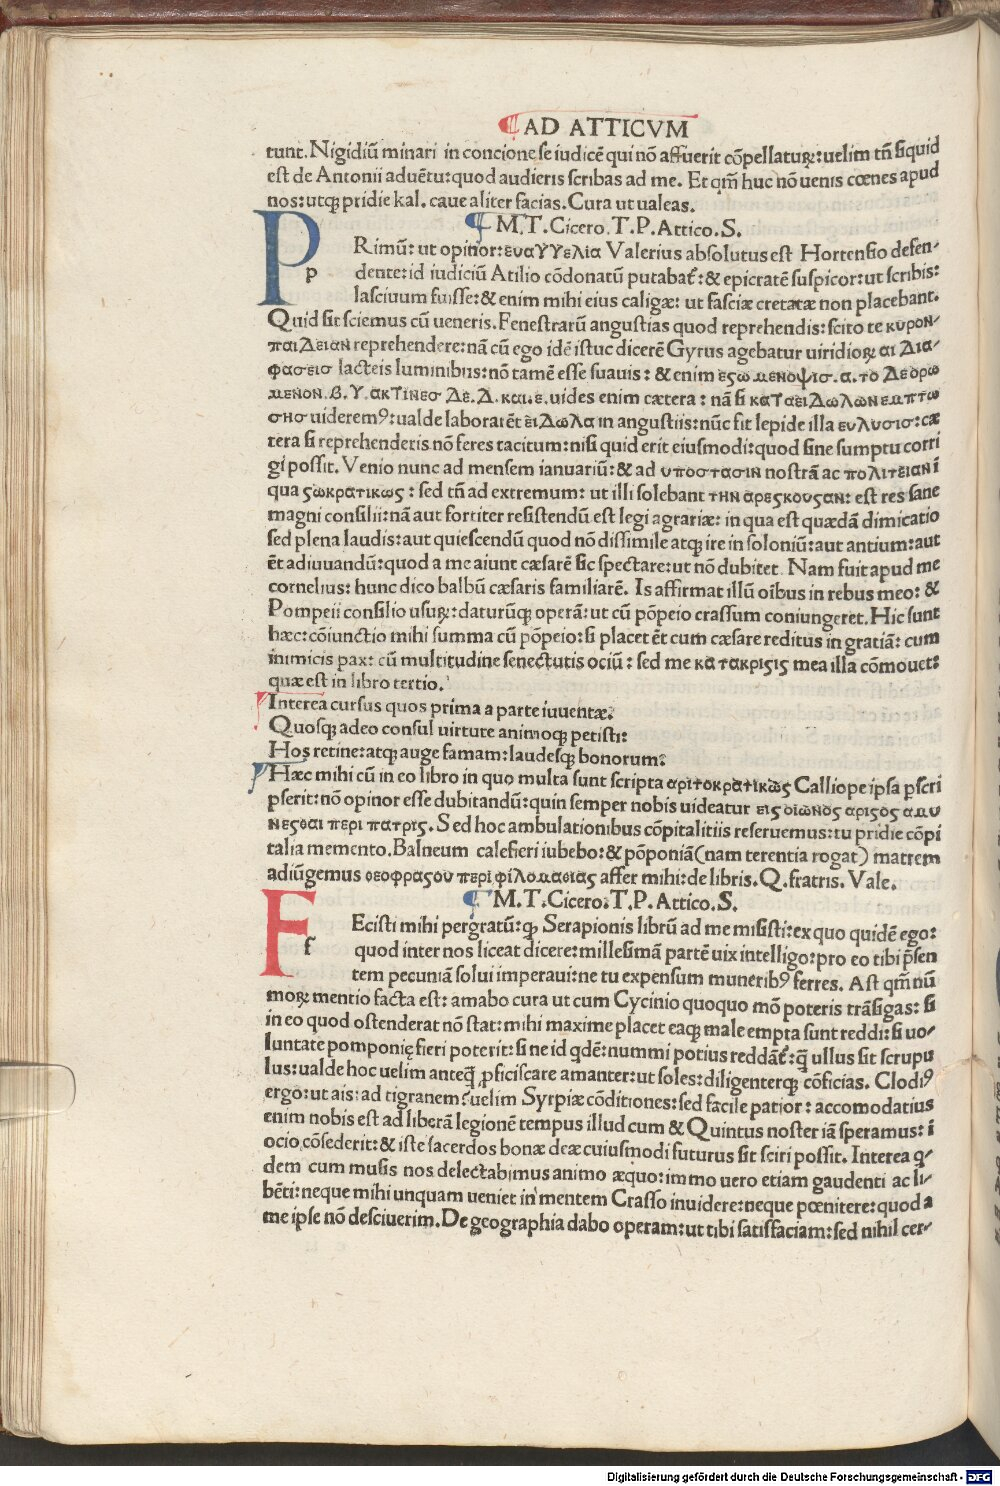 AD ATTICVM
tunt. Nigidiū minari in concione se iudicē qui nō affuerit cōpellaturꝝ: uelim tñ siquid
est de Antonii aduētu: quod audieris scribas ad me. Et qm̄ huc nō uenis cœnes apud
nos: utqꝫ pridie kal. caue aliter facias. Cura ut ualeas.
M. T. Cicero. T. P. Attico. S.
P
p
Rimū: ut opinor: ευαΥΥελια Valerius absolutus est Hortensio defen-
dente: id iudiciū Atilio cōdonatū putabat̄: & epicratē suspicor: ut scribis:
lasciuum fuisse: & enim mihi eius caligæ: ut fasciæ cretatæ non placebant.
Quid sit sciemus cū ueneris. Fenestrarū angustias quod reprehendis: scito te κυρον-
παιΔειαν reprehendere: nā cū ego idē istuc dicerē Gyrus agebatur uiridioꝝ αι Δια-
φασεισ lacteis luminibus: nō tamē esse suauis: & enim εςω μενοψισ. α. το Δεορω
μενον. β. Υ. ακτινεσ Δε. Δ. και. ε. uides enim cætera: nā si καταειΔωλων εμπτω
σησ uideremꝰ: ualde laborarēt ειΔωλα in angustiis: nūc fit lepide illa ευλυσισ: cæ
tera si reprehenderis nō feres tacitum: nisi quid erit eiusmodi: quod sine sumptu corri
gi possit. Venio nunc ad mensem ianuariū: & ad υποστασιν nostrā ac πολιτειαν ī
qua ςωκρατικως: sed tñ ad extremum: ut illi solebant την αρεςκουςαν: est res sane
magni consilii: nā aut fortiter resistendū est legi agrariæ: in qua est quædā dimicatio
sed plena laudis: aut quiescendū quod nō dissimile atqꝫ ire in soloniū: aut antium: aut
ēt adiuuandū: quod a me aiunt cæsarē sic spectare: ut nō dubitet. Nam fuit apud me
cornelius: hunc dico balbū cæsaris familiarē. Is affirmat illū oībus in rebus meo: &
Pompeii consilio usurꝝ: daturūqꝫ operā: ut cū pōpeio crassum coniungeret. Hic sunt
hæc: cōiunctio mihi summa cū pōpeio: si placet ēt cum cæsare reditus in gratiā: cum
inimicis pax: cū multitudine senectutis ociū: sed me κατακριςις mea illa cōmouet:
quæ est in libro tertio.
Interea cursus quos prima a parte iuuentæ.
Quosqꝫ adeo consul uirtute animoqꝫ petisti:
Hos retine: atqꝫ auge famam: laudesqꝫ bonorum:
Hæc mihi cū in eo libro in quo multa sunt scripta αριτοκρατικως Calliope ipsa p̱scri
pserit: nō opinor esse dubitandū: quin semper nobis uideatur εις οιωνος αριςος αμυ
νεςθαι περι πατρις. Sed hoc ambulationibus cōpitalitiis reseruemus: tu pridie cōpi
talia memento. Balneum calefieri iubebo: & pōponiā (nam terentia rogat) matrem
adiūgemus θεοφραςου περι φιλομαθιας affer mihi: de libris. Q. fratris. Vale.
M. T. Cicero. T. P. Attico. S.
F
f
Ecisti mihi pergratū: qꝫ Serapionis librū ad me misisti: ex quo quidē ego:
quod inter nos liceat dicere: millesimā partē uix intelligo: pro eo tibi p̄sen
tem pecuniā solui imperaui: ne tu expensum muneribꝰ ferres. Ast qm̄ nū
moꝝ mentio facta est: amabo cura ut cum Cycinio quoquo mō poteris trāsigas: si
in eo quod ostenderat nō stat: mihi maxime placet eaqꝫ male empta sunt reddi: si uo-
luntate pomponię fieri poterit: si ne id qdē: nummi potius reddāt̄: q̄ ullus sit scrupu
lus: ualde hoc uelim anteq̄ ꝓficiscare amanter: ut soles: diligenterqꝫ cōficias. Clodiꝰ
ergo: ut ais: ad tigranem? uelim Syrpiæ cōditiones: sed facile patior: accomodatius
enim nobis est ad liberā legionē tempus illud cum & Quintus noster iā speramus: ī
ocio cōsederit: & iste sacerdos bonæ deæ cuiusmodi futurus sit sciri possit. Interea q-
dem cum musis nos delectabimus animo æquo: immo uero etiam gaudenti ac li-
bēti: neque mihi unquam ueniet in mentem Crasso inuidere: neque pœnitere: quod a
me ipse nō desciuerim. De geographia dabo operam: ut tibi satisfaciam: sed nihil cer-
Digitalisierung gefördert durch die Deutsche Forschungsgemeinschaft - DFG